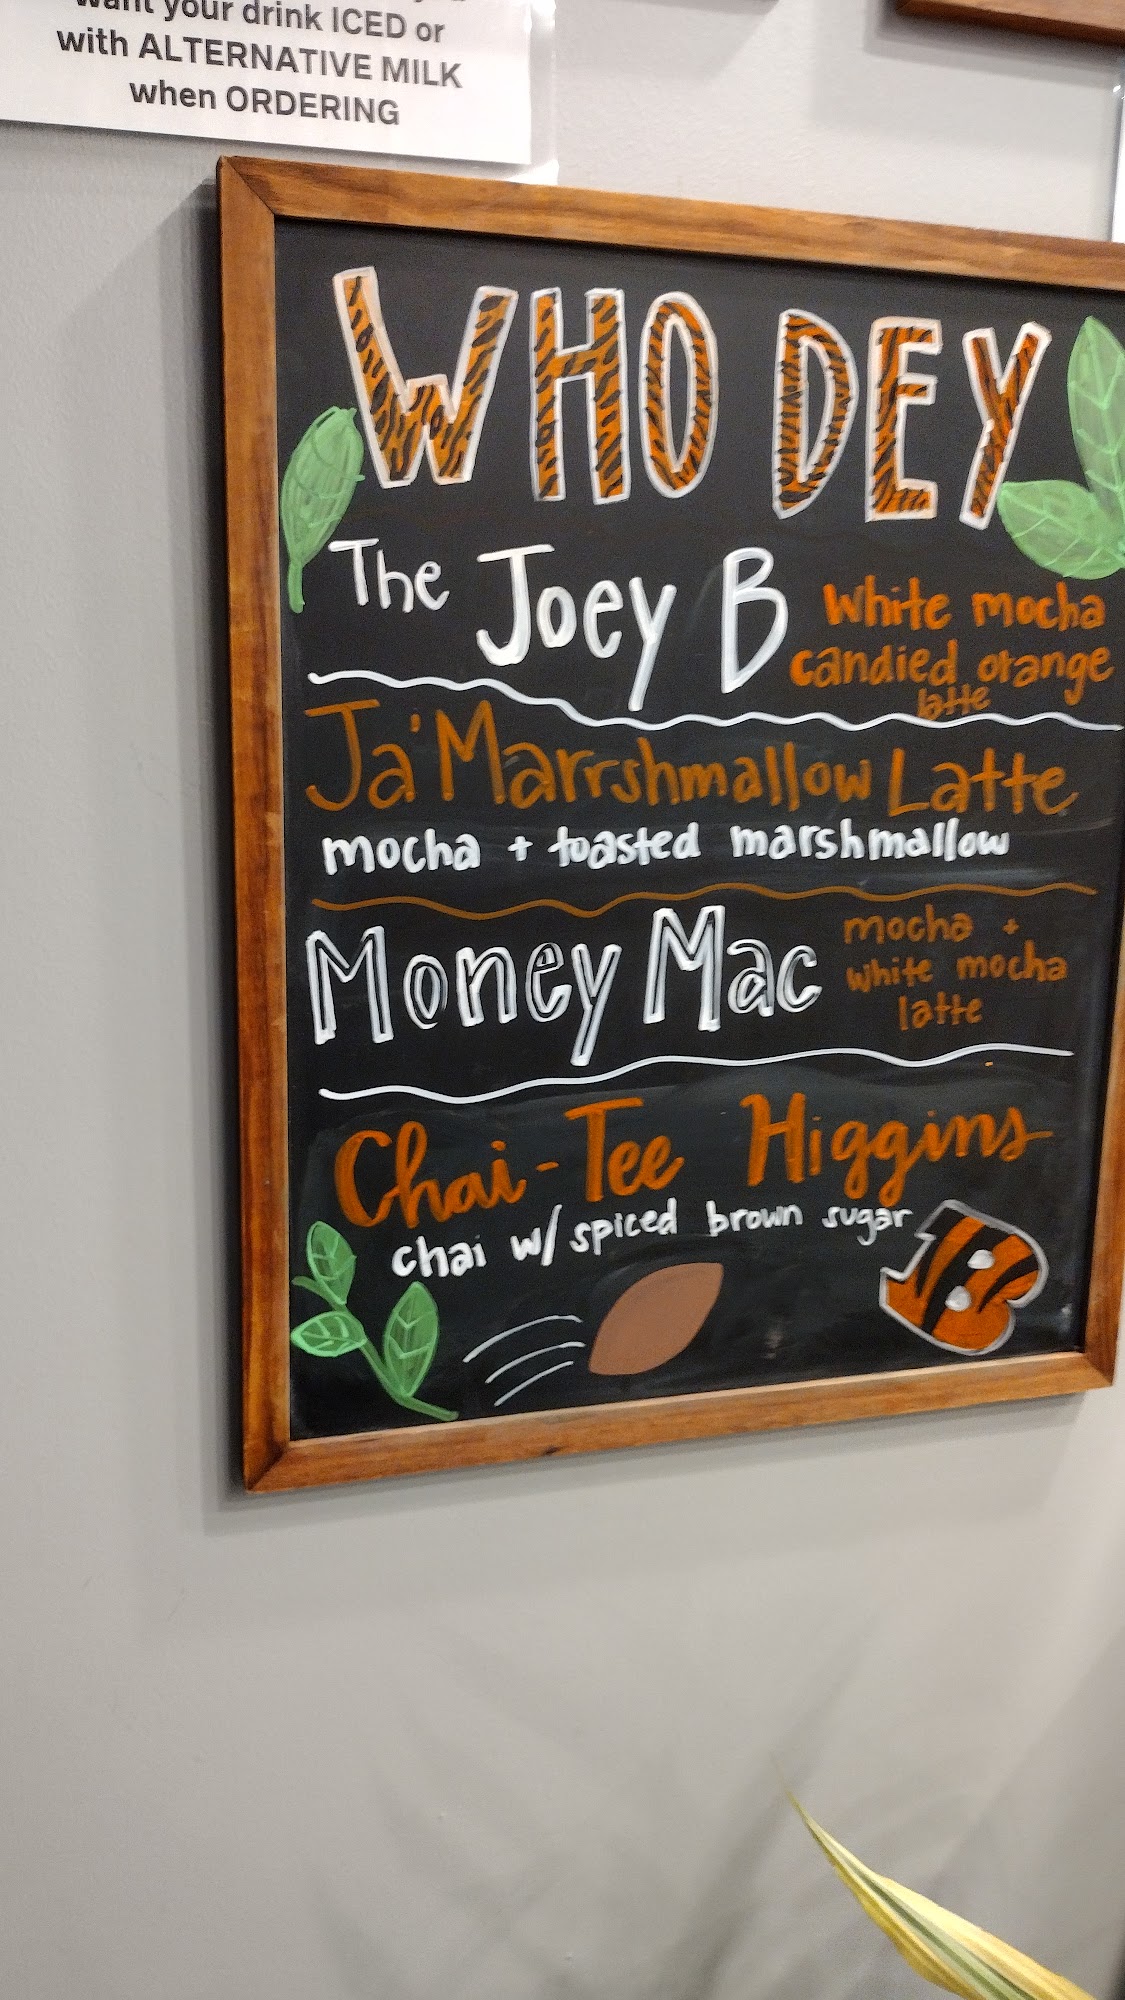 want your drink ICED or
with ALTERNATIVE MILK
when ORDERING
WHO DEY
The Joey B
White mocha
candied orange
latte
Ja'Marrshmallow Latte
mocha + toasted marshmallow
Money Mac
mocha +
white mocha
latte
Chai-Tee Higgins
chai w/ spiced brown sugar
B